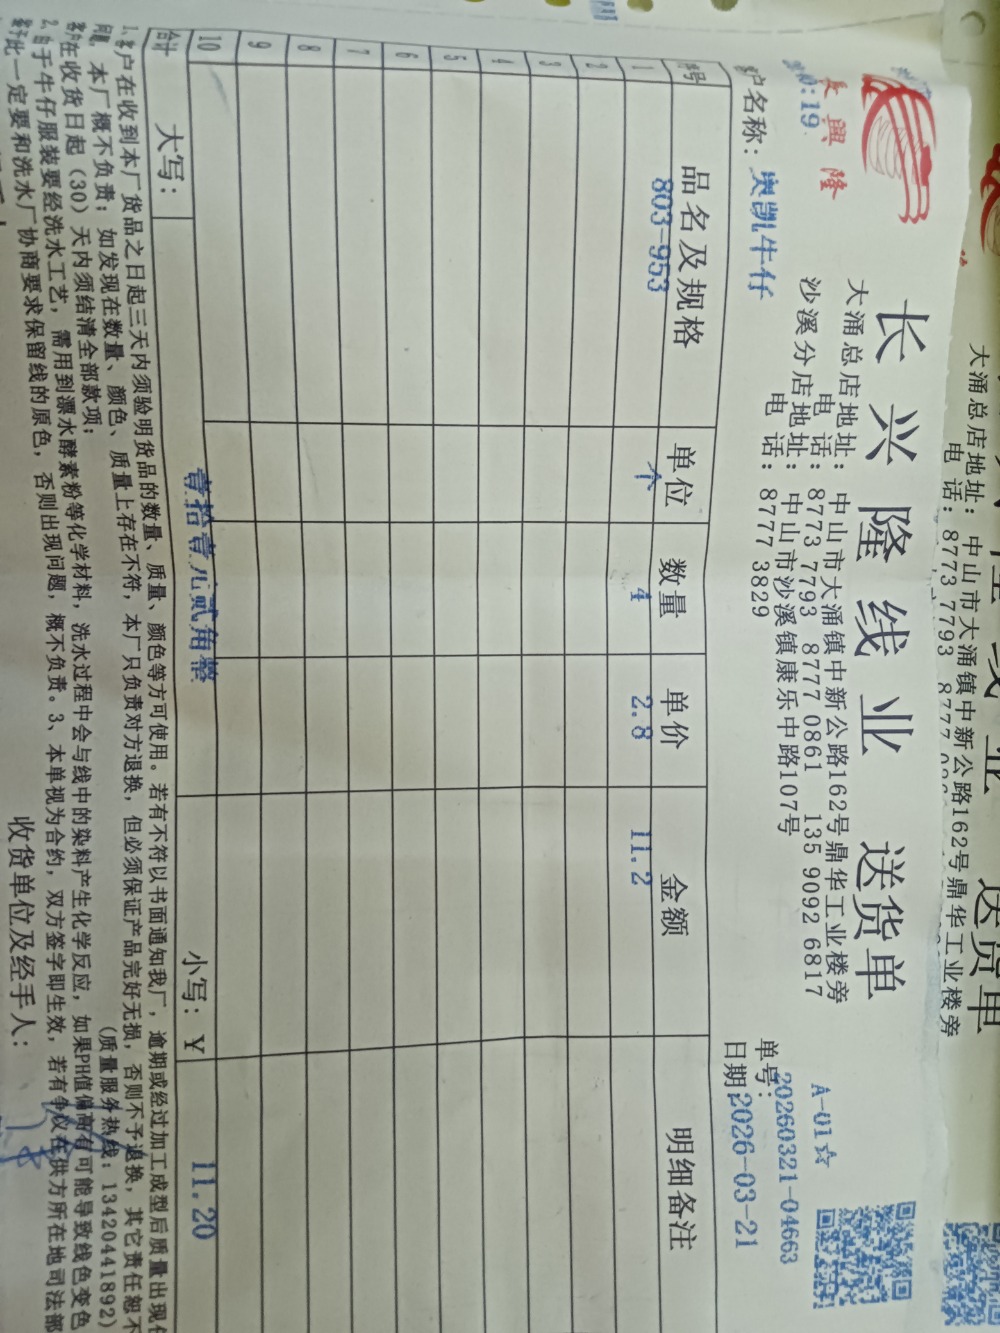 長興隆
长兴隆线业 送货单
大涌总店地址：中山市大涌镇中新公路162号鼎华工业楼旁
电话：8773 7793 8777 0861 135 9092 6817
沙溪分店地址：中山市沙溪镇康乐中路107号
电话：8777 3829
A-01☆
单号：20260321-04663
日期：2026-03-21
:19
户名称：奥凯牛仔
序号 品名及规格 单位 数量 单价 金额 明细备注
1 803-953 个 4 2.8 11.2
2
3
4
5
6
7
8
9
10
合计 大写： 壹拾壹元贰角整 小写：¥ 11.20
1、客户在收到本厂货品之日起三天内须验明货品的数量、质量、颜色等方可使用。若有不符以书面通知我厂，逾期或经过加工成型后质量出现任
问题，本厂概不负责；如发现在数量、颜色、质量上存在不符，本厂只负责对方退换，但必须保证产品完好无损，否则不予退换，其它责任恕不
客户在收货日起（30）天内须结清全部款项； （质量服务热线：13420441892）
2、由于牛仔服装要经洗水工艺，需用到漂水酵素粉等化学材料，洗水过程中会与线中的染料产生化学反应，如果PH值偏高有可能导致线色变色
客户此一定要和洗水厂协商要求保留线的原色，否则出现问题，概不负责。3、本单视为合约，双方签字即生效，若有争议在供方所在地司法部
收货单位及经手人：
大涌总店地址：中山市大涌镇中新公路162号鼎华工业楼旁
电话：8773 7793
送货单